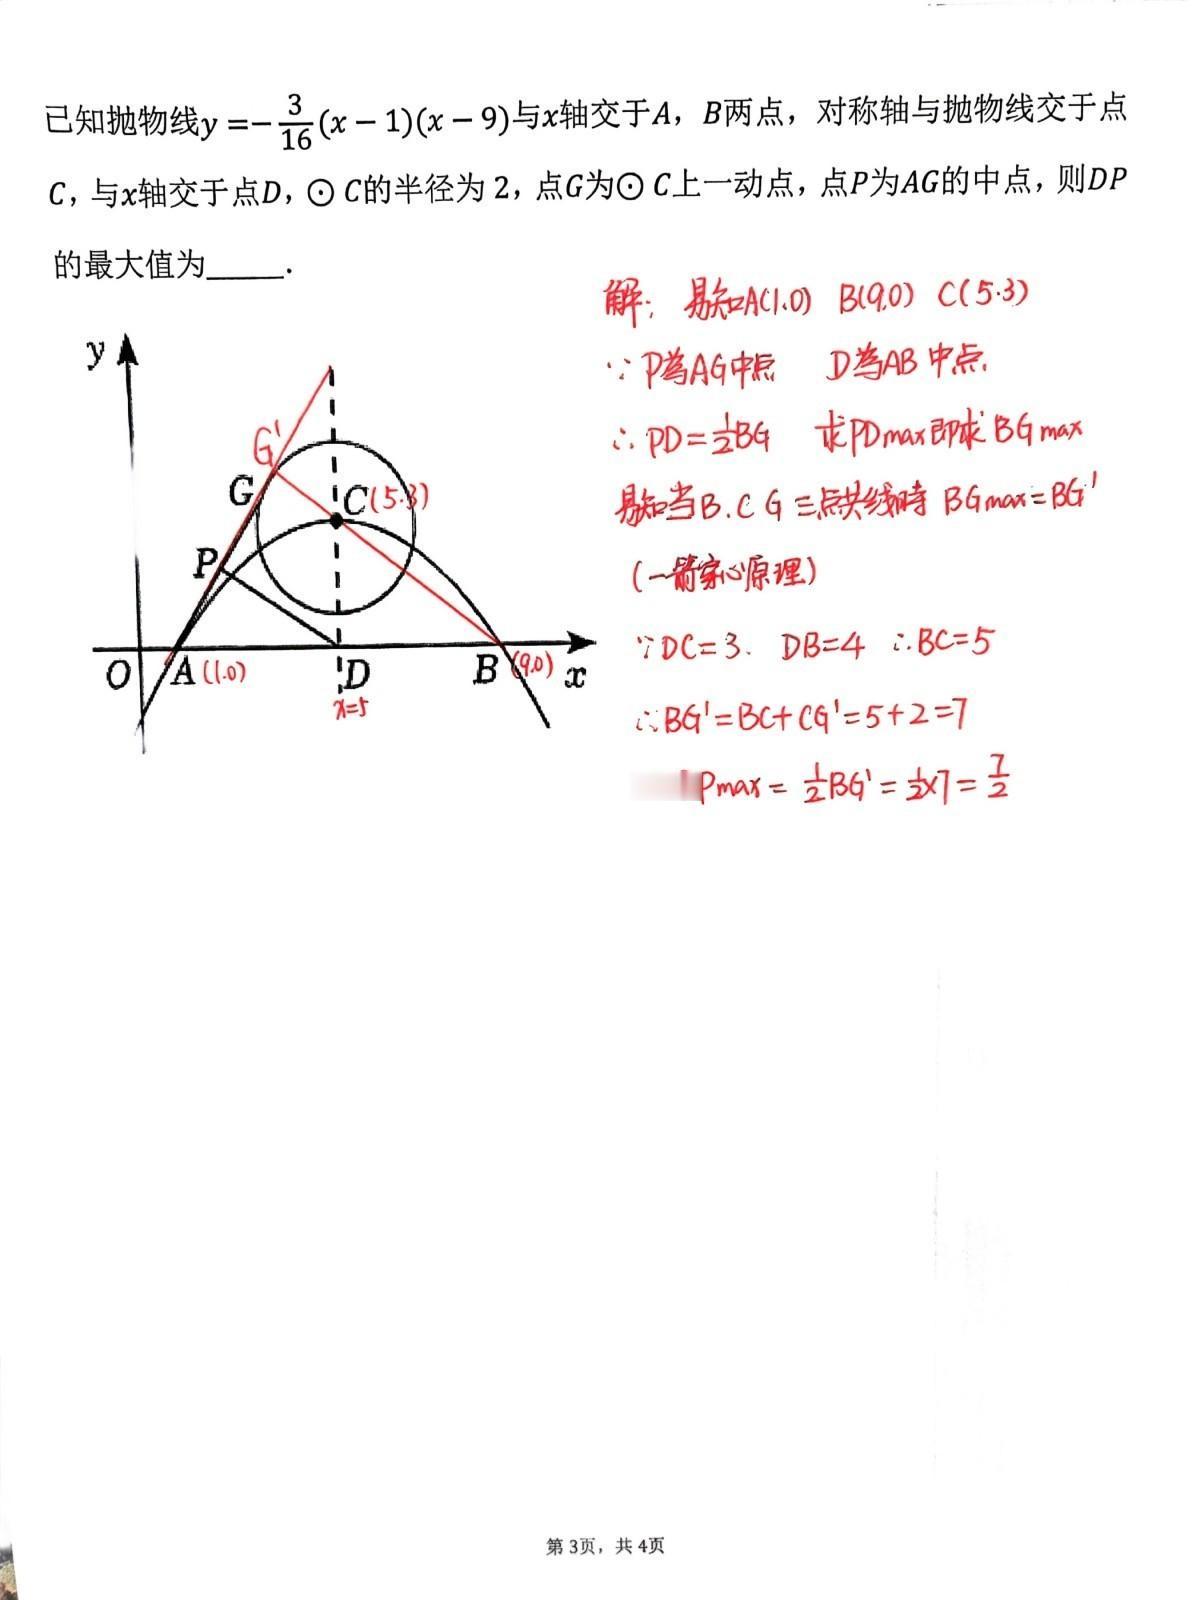 已知抛物线y =-3/16(x − 1)(x − 9)与x轴交于A，B两点，对称轴与抛物线交于点
C，与x轴交于点D，⊙ C的半径为 2，点G为⊙ C上一动点，点P为AG的中点，则DP
的最大值为_____.
解：易知A(1.0) B(9,0) C(5.3)
∵ P為AG中点 D為AB中点.
∴ PD=1/2BG 求PDmax即求BGmax
易知当B.C G三点共线時 BGmax=BG'
(一箭穿心原理)
∵DC=3. DB=4 ∴BC=5
∴BG'=BC+CG'=5+2=7
Pmax= 1/2BG'= 1/2×7= 7/2
y
G'
G
C(5.3)
P
O
A(1.0)
D
B(9,0)
x
x=5
第 3页，共 4页